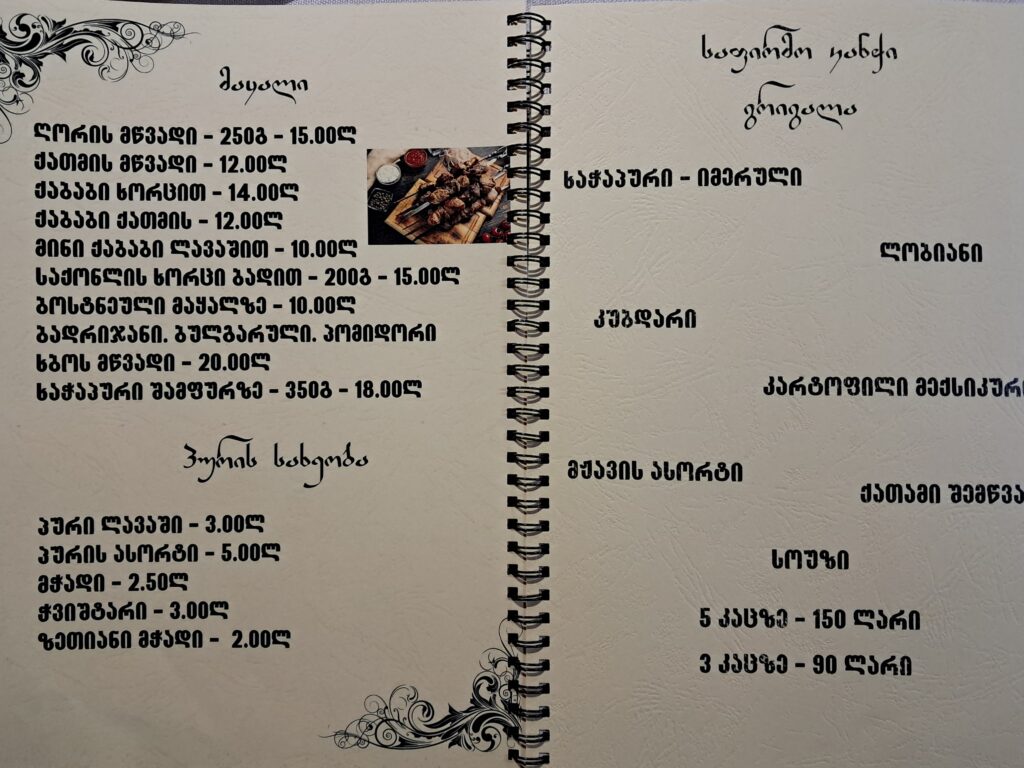 მაყალი
ღორის მწვადი - 250გ - 15.00ლ
ქათმის მწვადი - 12.00ლ
ქაბაბი ხორცით - 14.00ლ
ქაბაბი ქათმის - 12.00ლ
მინი ქაბაბი ლავაშით - 10.00ლ
საქონლის ხორცი ბადით - 200გ - 15.00ლ
ბოსტნეული მაყალზე - 10.00ლ
ბადრიჯანი. ბულგარული. პომიდორი
ხბოს მწვადი - 20.00ლ
ხაჭაპური შამფურზე - 350გ - 18.00ლ
პურის სახეობა
პური ლავაში - 3.00ლ
პურის ასორტი - 5.00ლ
მჭადი - 2.50ლ
ჭვიშტარი - 3.00ლ
ზეთიანი მჭადი - 2.00ლ
საფირმო ყანწი
გრიგალა
ხაჭაპური - იმერული
ლობიანი
კუბდარი
კარტოფილი მექსიკური
მჟავის ასორტი
ქათამი შემწვა
სოუზი
5 კაცზე - 150 ლარი
3 კაცზე - 90 ლარი